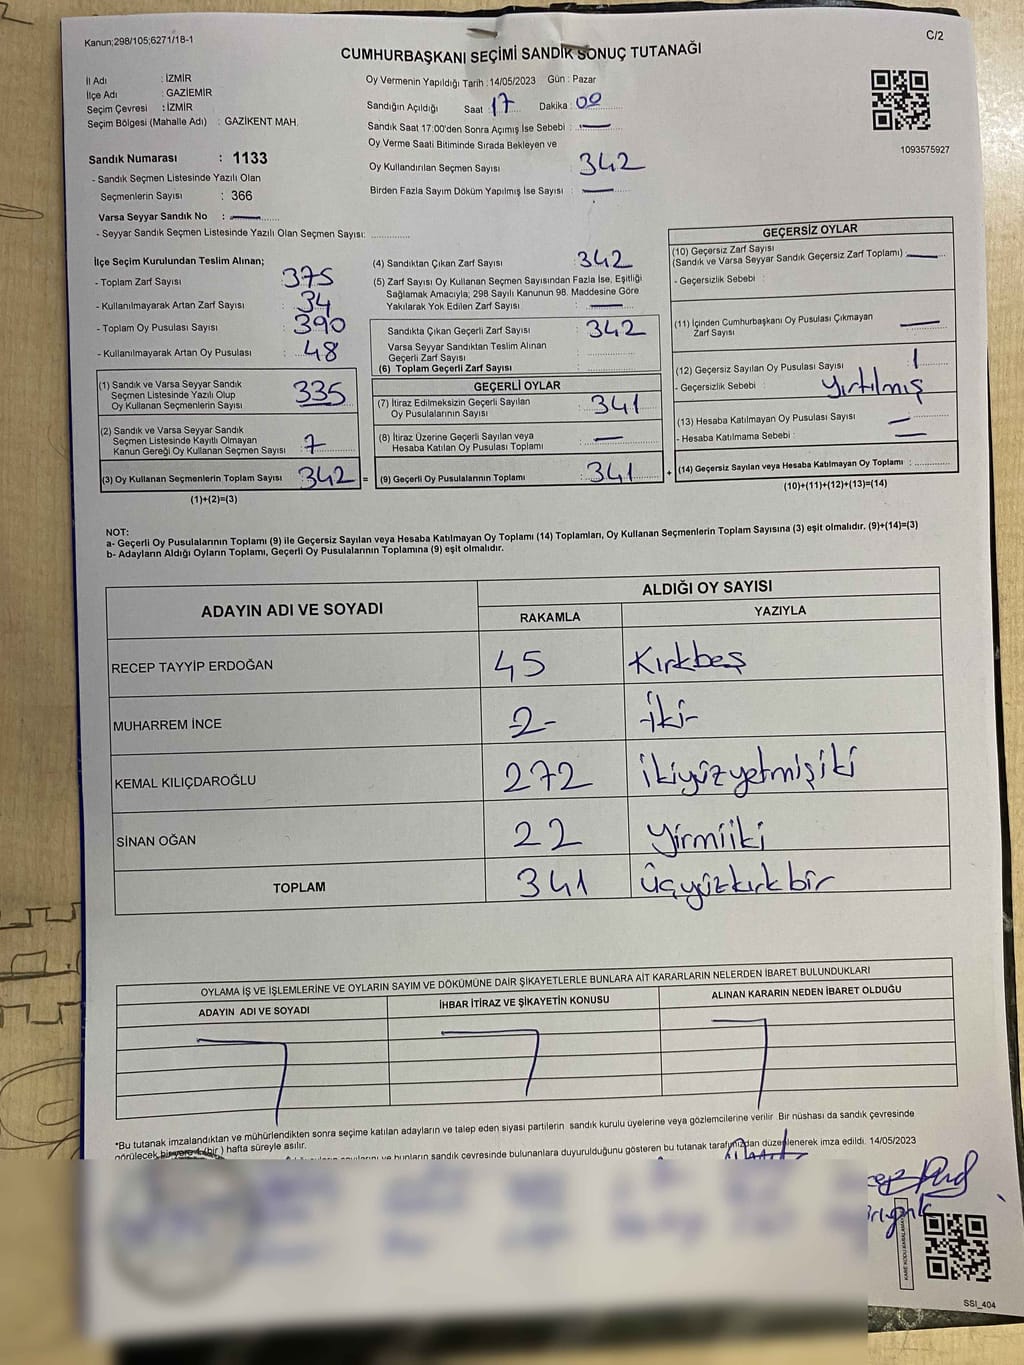 Kanun;298/105;6271/18-1
C/2
CUMHURBAŞKANI SEÇİMİ SANDIK SONUÇ TUTANAĞI
İl Adı : İZMİR
İlçe Adı : GAZİEMİR
Seçim Çevresi : İZMİR
Seçim Bölgesi (Mahalle Adı) : GAZİKENT MAH.
Oy Vermenin Yapıldığı Tarih : 14/05/2023 Gün : Pazar
Sandığın Açıldığı Saat : 17 Dakika : 00
Sandık Saat 17:00'den Sonra Açımış İse Sebebi : —
Oy Verme Saati Bitiminde Sırada Bekleyen ve
Oy Kullandırılan Seçmen Sayısı : 342
Birden Fazla Sayım Döküm Yapılmış İse Sayısı : —
1093575927
Sandık Numarası : 1133
- Sandık Seçmen Listesinde Yazılı Olan
Seçmenlerin Sayısı : 366
Varsa Seyyar Sandık No : —
- Seyyar Sandık Seçmen Listesinde Yazılı Olan Seçmen Sayısı: ..............
İlçe Seçim Kurulundan Teslim Alınan;
- Toplam Zarf Sayısı : 375
- Kullanılmayarak Artan Zarf Sayısı : 34
- Toplam Oy Pusulası Sayısı : 390
- Kullanılmayarak Artan Oy Pusulası : 48
(1) Sandık ve Varsa Seyyar Sandık
Seçmen Listesinde Yazılı Olup
Oy Kullanan Seçmenlerin Sayısı 335
(2) Sandık ve Varsa Seyyar Sandık
Seçmen Listesinde Kayıtlı Olmayan
Kanun Gereği Oy Kullanan Seçmen Sayısı : 7
(3) Oy Kullanan Seçmenlerin Toplam Sayısı 342 =
(1)+(2)=(3)
(4) Sandıktan Çıkan Zarf Sayısı 342
(5) Zarf Sayısı Oy Kullanan Seçmen Sayısından Fazla İse, Eşitliği
Sağlamak Amacıyla; 298 Sayılı Kanunun 98. Maddesine Göre
Yakılarak Yok Edilen Zarf Sayısı : —
Sandıkta Çıkan Geçerli Zarf Sayısı : 342
Varsa Seyyar Sandıktan Teslim Alınan
Geçerli Zarf Sayısı :
(6) Toplam Geçerli Zarf Sayısı :
GEÇERLİ OYLAR
(7) İtiraz Edilmeksizin Geçerli Sayılan
Oy Pusulalarının Sayısı : 341
(8) İtiraz Üzerine Geçerli Sayılan veya
Hesaba Katılan Oy Pusulası Toplamı : —
(9) Geçerli Oy Pusulalarının Toplamı : 341 +
GEÇERSİZ OYLAR
(10) Geçersiz Zarf Sayısı
(Sandık ve Varsa Seyyar Sandık Geçersiz Zarf Toplamı) —
- Geçersizlik Sebebi :
(11) İçinden Cumhurbaşkanı Oy Pusulası Çıkmayan
Zarf Sayısı : —
(12) Geçersiz Sayılan Oy Pusulası Sayısı : 1
- Geçersizlik Sebebi : Yırtılmış
(13) Hesaba Katılmayan Oy Pusulası Sayısı : —
- Hesaba Katılmama Sebebi : —
(14) Geçersiz Sayılan veya Hesaba Katılmayan Oy Toplamı : ............
(10)+(11)+(12)+(13)=(14)
NOT:
a- Geçerli Oy Pusulalarının Toplamı (9) ile Geçersiz Sayılan veya Hesaba Katılmayan Oy Toplamı (14) Toplamları, Oy Kullanan Seçmenlerin Toplam Sayısına (3) eşit olmalıdır. (9)+(14)=(3)
b- Adayların Aldığı Oyların Toplamı, Geçerli Oy Pusulalarının Toplamına (9) eşit olmalıdır.
ADAYIN ADI VE SOYADI ALDIĞI OY SAYISI
RAKAMLA YAZIYLA
RECEP TAYYİP ERDOĞAN 45 Kırkbeş
MUHARREM İNCE -2- -iki-
KEMAL KILIÇDAROĞLU 272 ikiyüzyetmişiki
SİNAN OĞAN 22 Yirmiiki
TOPLAM 341 üçyüzkırkbir
OYLAMA İŞ VE İŞLEMLERİNE VE OYLARIN SAYIM VE DÖKÜMÜNE DAİR ŞİKAYETLERLE BUNLARA AİT KARARLARIN NELERDEN İBARET BULUNDUKLARI
ADAYIN ADI VE SOYADI İHBAR İTİRAZ VE ŞİKAYETİN KONUSU ALINAN KARARIN NEDEN İBARET OLDUĞU
*Bu tutanak imzalandıktan ve mühürlendikten sonra seçime katılan adayların ve talep eden siyasi partilerin sandık kurulu üyelerine veya gözlemcilerine verilir. Bir nüshası da sandık çevresinde
görülecek bir yere 1 (bir ) hafta süreyle asılır.
ve bunların sandık çevresinde bulunanlara duyurulduğunu gösteren bu tutanak tarafımızdan düzenlenerek imza edildi. 14/05/2023
KARE KODU KARALAMAYINIZ
SSI_404